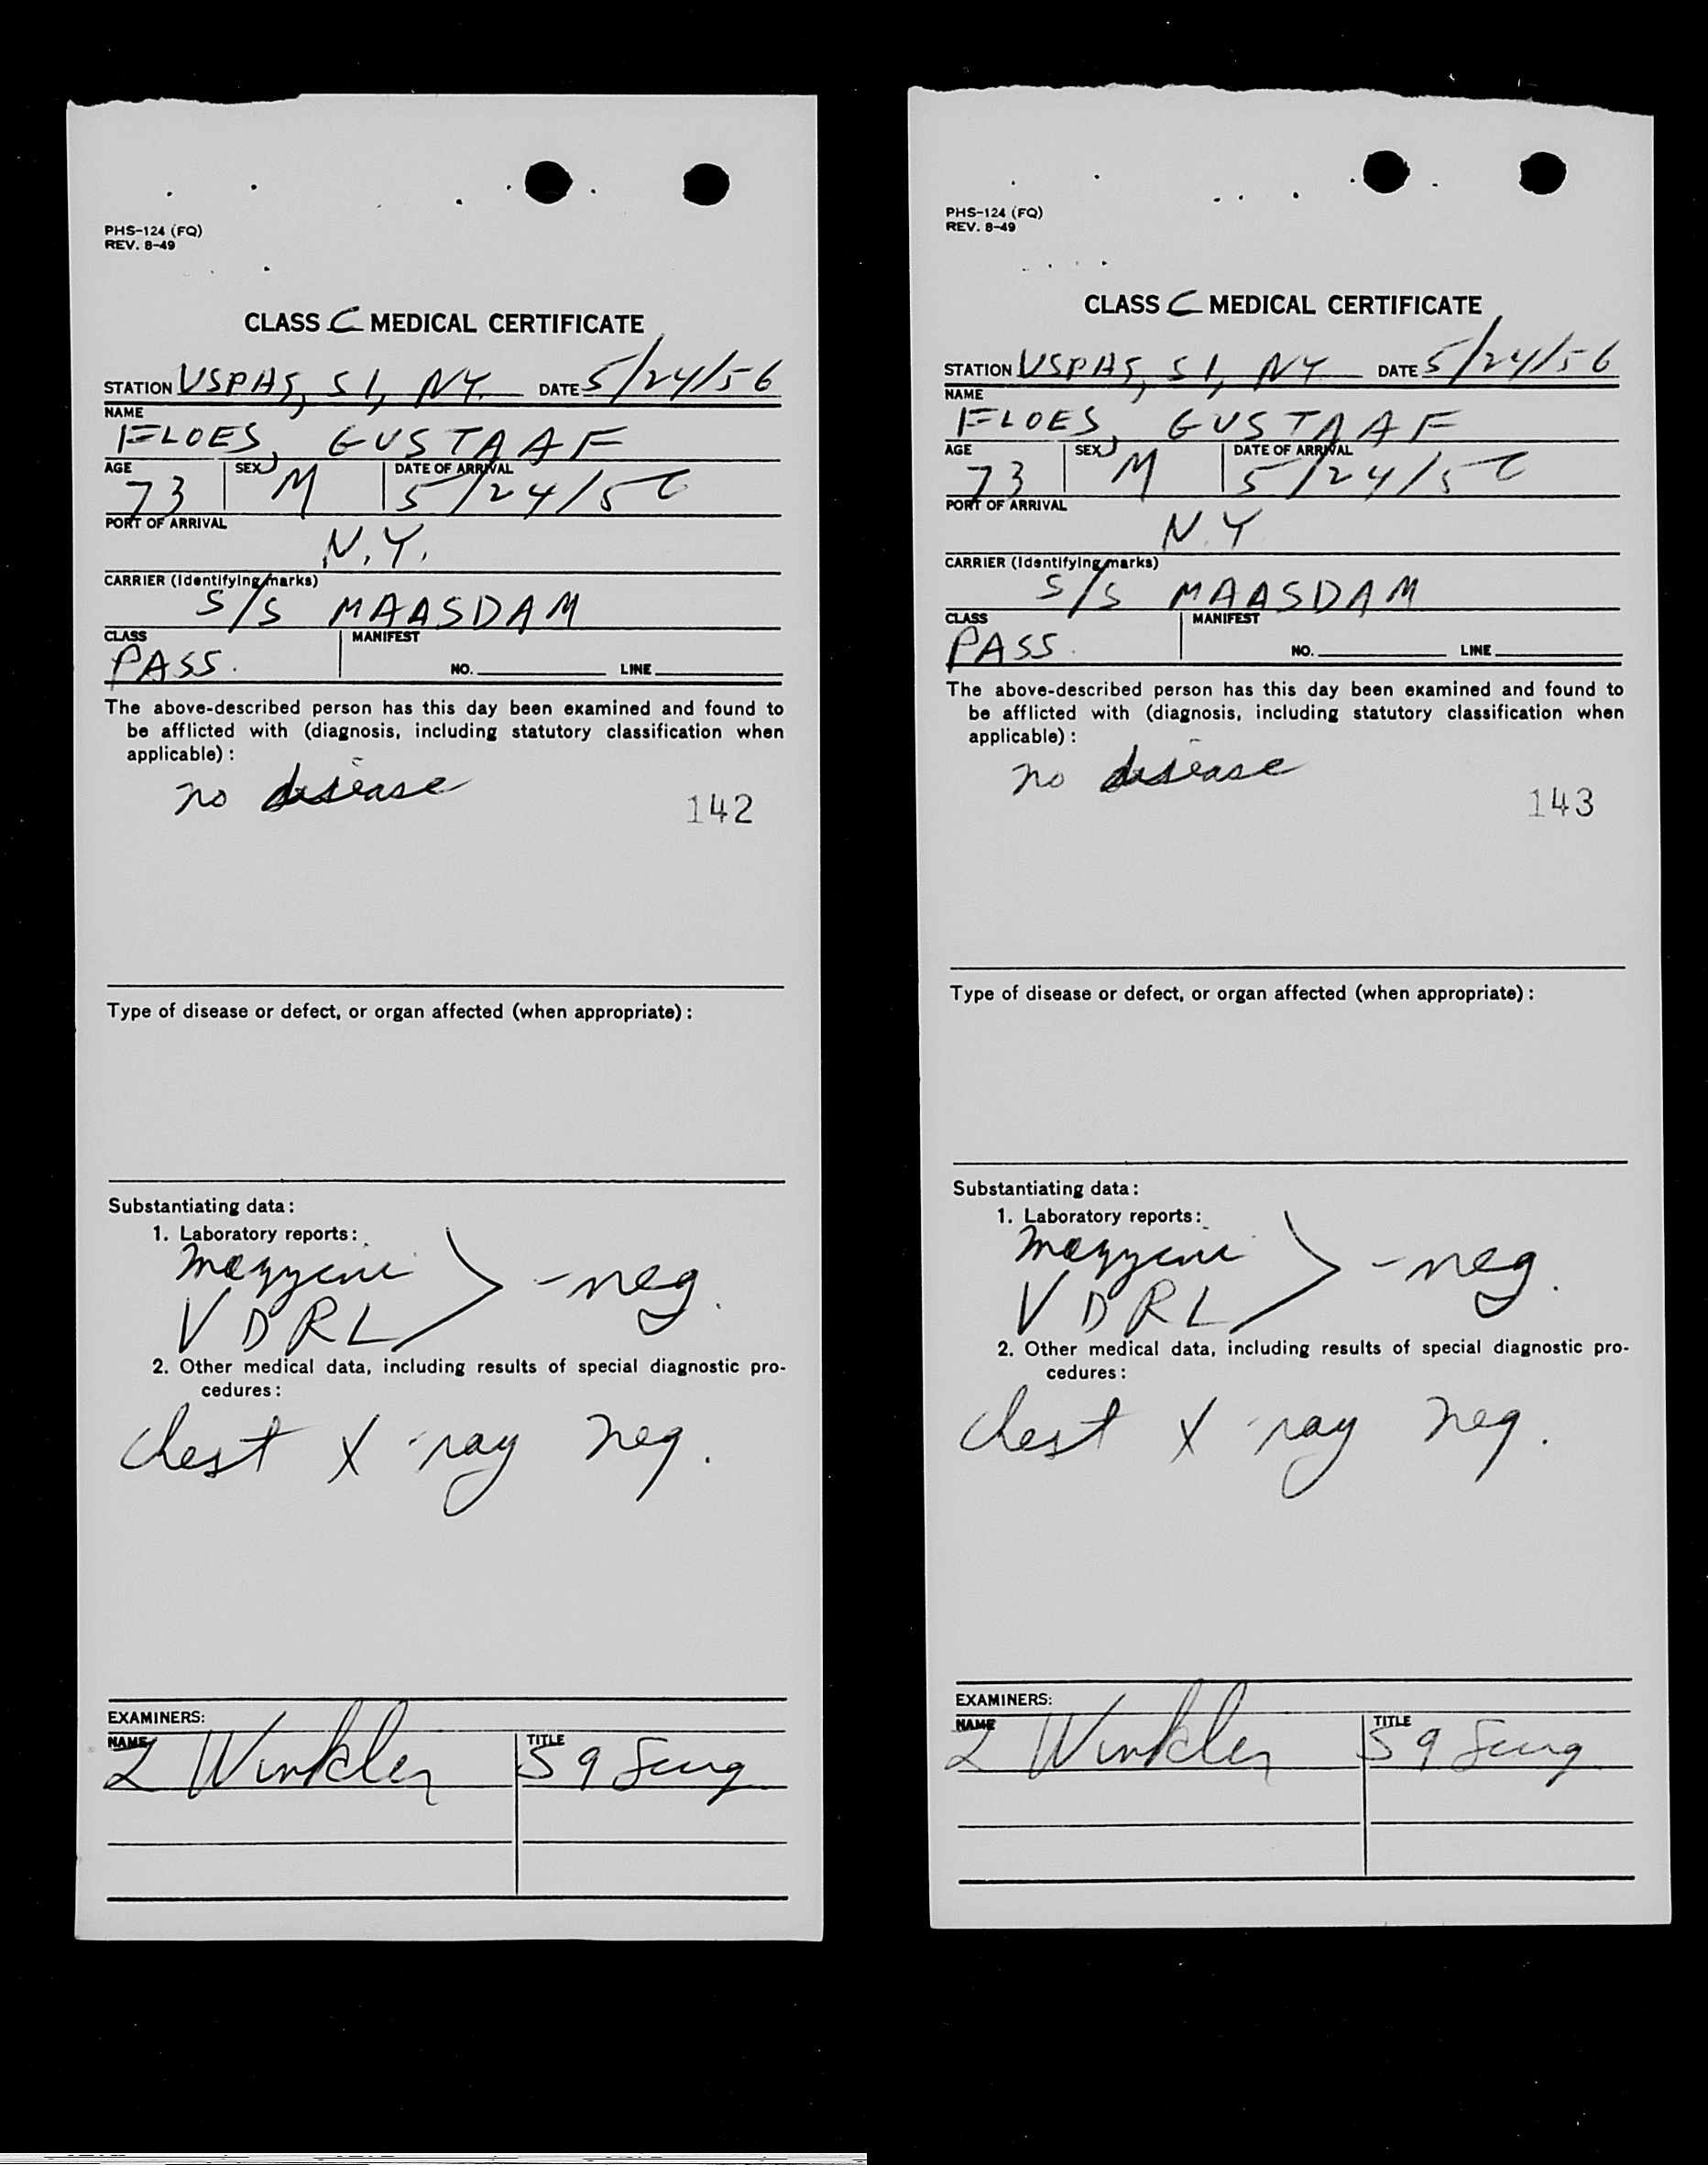 PHS-124 (FQ)
REV. 8-49
CLASS C MEDICAL CERTIFICATE
STATION USPHS, SI, NY. DATE 5/24/56
NAME
FLOES, GUSTAAF
AGE SEX DATE OF ARRIVAL
73 M 5/24/56
PORT OF ARRIVAL
N.Y.
CARRIER (Identifying marks)
S/S MAASDAM
CLASS MANIFEST
PASS. NO. LINE
The above-described person has this day been examined and found to
be afflicted with (diagnosis, including statutory classification when
applicable) :
no disease
142
Type of disease or defect, or organ affected (when appropriate) :
Substantiating data :
1. Laboratory reports :
Mazzini
VDRL > - neg.
2. Other medical data, including results of special diagnostic pro-
cedures :
Chest X-ray neg.
EXAMINERS:
NAME TITLE
L Winkler
PHS-124 (FQ)
REV. 8-49
CLASS C MEDICAL CERTIFICATE
STATION USPHS, SI, NY DATE 5/24/56
NAME
FLOES, GUSTAAF
AGE SEX DATE OF ARRIVAL
73 M 5/24/56
PORT OF ARRIVAL
N.Y
CARRIER (Identifying marks)
S/S MAASDAM
CLASS MANIFEST
PASS. NO. LINE
The above-described person has this day been examined and found to
be afflicted with (diagnosis, including statutory classification when
applicable) :
no disease
143
Type of disease or defect, or organ affected (when appropriate) :
Substantiating data :
1. Laboratory reports :
Mazzini
VDRL > - neg.
2. Other medical data, including results of special diagnostic pro-
cedures :
Chest X-ray neg.
EXAMINERS:
NAME TITLE
L Winkler